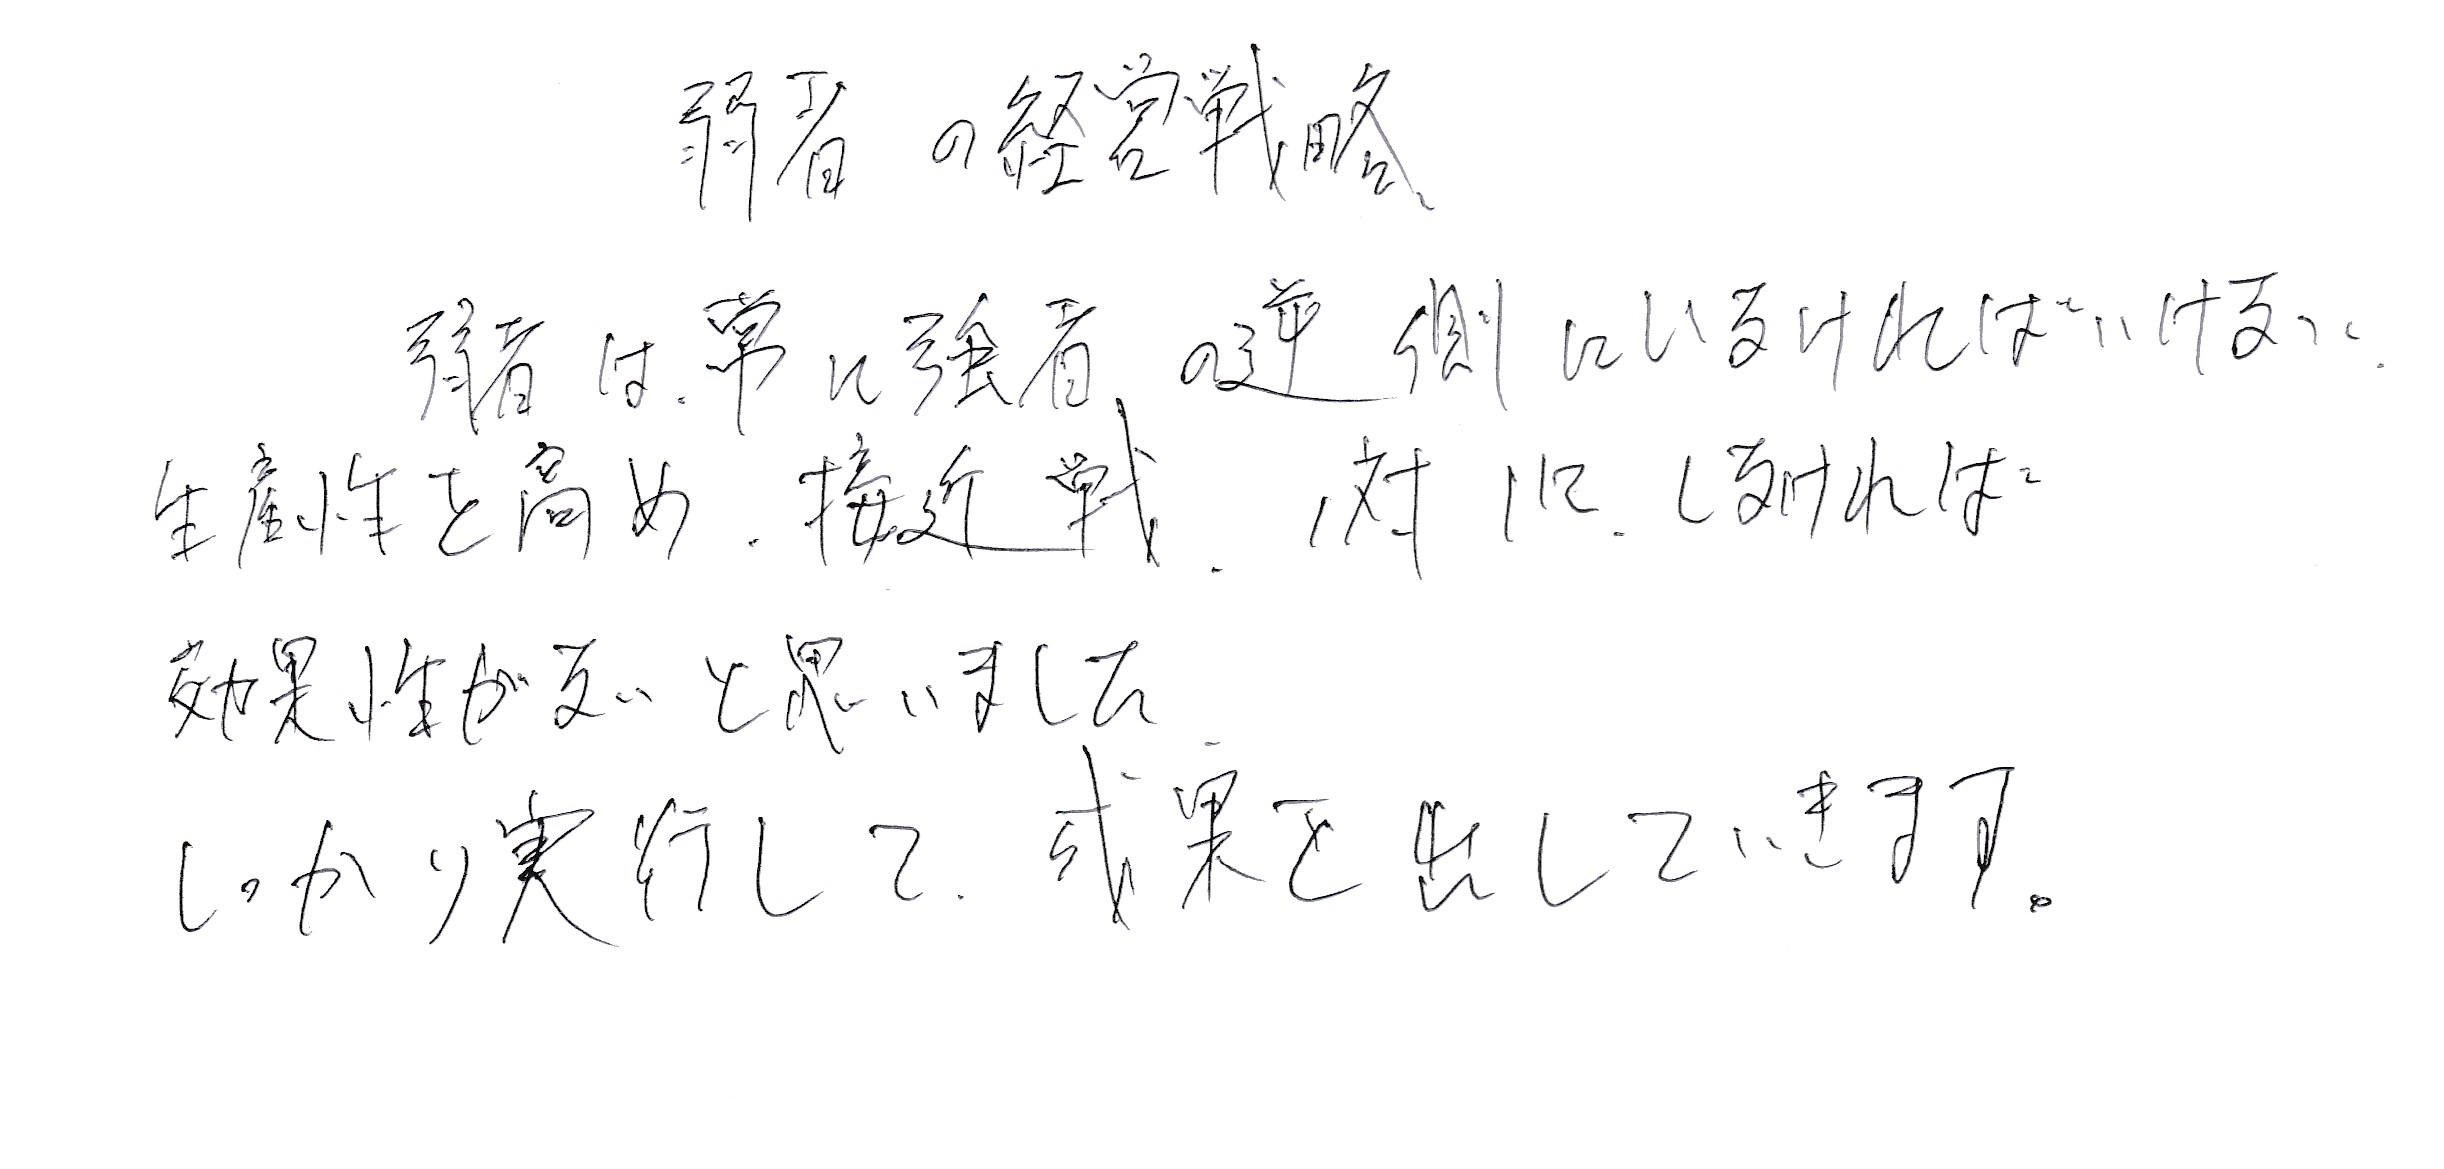 弱者の経営戦略
弱者は、常に強者の逆側にいなければいけない、
生産性を高め、接近戦、1対1に、しなければ
効果性がないと思いました
しっかり実行して、成果を出していきます。